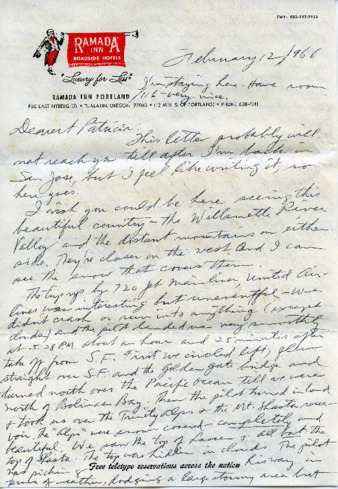 RAMADA
INN
ROADSIDE HOTELS
"Luxury for Less"
February 12/1966
I'm staying here. Have room
116 - very nice.
RAMADA INN PORTLAND
TUALATIN, OREGON 97062 • (12 MIN. S. OF PORTLAND) • PHONE 638-
Dearest Patricia:
This letter probably will
not reach you till after I'm back in
San Jose, but I feel like writing it, so
here goes.
I wish you could be here seeing this
beautiful country - the Willamette River
Valley and the distant mountains on either
side. They're closer on the west and I can
see the snow that covers them.
The trip up by 720 jet Mainliner, United Air-
lines was interesting but uneventful - We
didn't crash or run into anything (except
clouds) and the pilot landed us very smoothly
at 5:28 PM. about an hour and 25 minutes after
take off from S.F. First we circled left, flew
straight over S.F. and the Golden gate bridge and
turned north over the Pacific Ocean till we were
north of Bolinas Bay. Then the pilot turned inland
& took us over the Trinity Alps & the Mt. Shasta reser-
voir. The Alps were snow covered - completely and
beautiful. We saw the top of Lassen & all but the
top of Shasta. The top was hidden in cloud. The pilot
was picking his way in
Free teletype reservations across the nation
terms of weather, dodging a large stormy area but